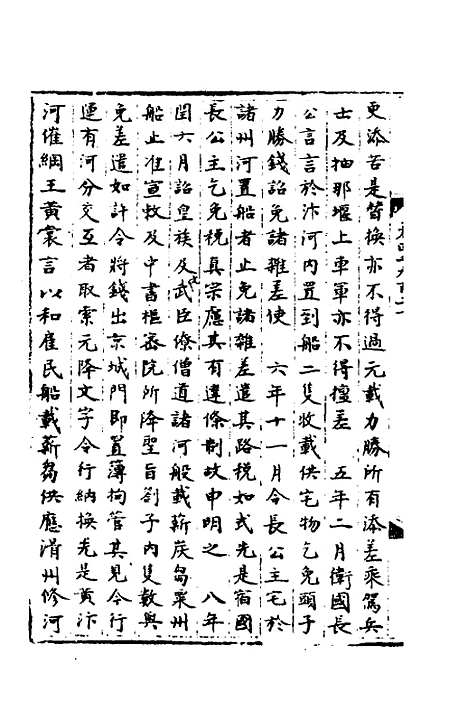 更添若是替換亦不得過元載力勝所有添差乘駕兵
士及抽那堰上車軍亦不得擅差　五年二月衛國長
公言言於汴河內置到船二隻收載供宅物乞免頭子
力勝錢詔免諸雜差使　六年十一月令長公主宅於
諸州河置船者止免諸雜差遣其路稅如式先是宿國
長公主乞免稅真宗應其有違條制故申明之　八年
閏六月詔皇族及武臣僚僧道諸河般載薪炭芻粟州
船止准宣敕及中書樞密院所降聖旨劄子內隻數與
免差遣如計令將錢出京城門即置簿拘管其見今行
運有河分交互者取索元降文字令行納換先是黃汴
河催綱王黃裳言以和雇民船載薪芻供應滑州修河